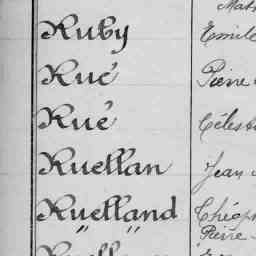 Ruby Emile
Rué Pierre
Rué Célest
Ruellan Jean
Ruelland Théop
" " Pierre